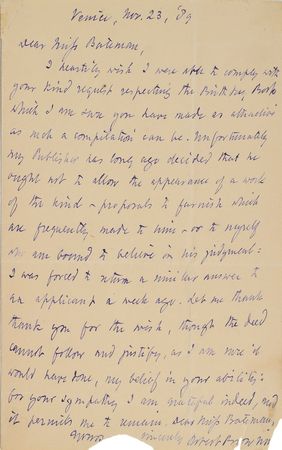 Venice, Nov. 23, '89
Dear Miss Bateman,
I heartily wish I were able to comply with
your kind request respecting the Birthday Book
which I am sure you have made as attractive
as such a compilation can be. Unfortunately
my Publisher has long ago decided that he
ought not to allow the appearance of a work
of the kind – proposals to furnish which
are frequently made to him – or to myself
who am bound to believe in his judgment:
I was forced to return a similar answer to
an applicant a week ago. Let me thank
thank you for the wish, though the deed
cannot follow and justify, as I am sure it
would have done, my belief in your ability:
for your sympathy I am grateful indeed, and
it permits me to remain, Dear Miss Bateman,
Yours sincerely Robert Browning